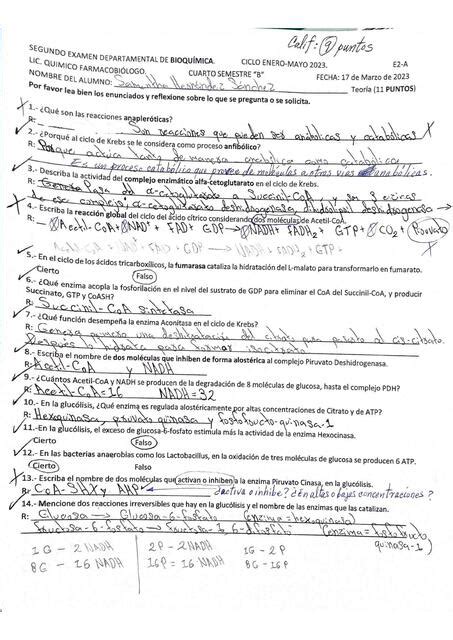 Calif: 9 puntos
SEGUNDO EXAMEN DEPARTAMENTAL DE BIOQUÍMICA. CICLO ENERO-MAYO 2023. E2-A
LIC. QUIMICO FARMACOBIÓLOGO. CUARTO SEMESTRE "B" FECHA: 17 de Marzo de 2023
NOMBRE DEL ALUMNO: Samantha Hernández Sánchez Teoría (11 PUNTOS)
Por favor lea bien los enunciados y reflexione sobre lo que se pregunta o se solicita.
1.- ¿Qué son las reacciones anapleróticas?
R: Son reacciones que pueden ser anabólicas y catabólicas
2.- ¿Porqué al ciclo de Krebs se le considera como proceso anfibólico?
R: Porque actúa tanto de manera anabólica como catabólica
Es un proceso catabólico que provee de moléculas a otras vías anabólicas.
3.- Describa la actividad del complejo enzimático alfa-cetoglutarato en el ciclo de Krebs.
R: Genera Pasa del α-cetoglutarato a Succinil-CoA y son 3 enzimas
de ese complejo, α-cetoglutarato deshidrogenasa, dihidrolipil deshidrogenasa
4.- Escriba la reacción global del ciclo del ácido cítrico considerando dos moléculas de Acetil-CoA.
R: Acetil-CoA + NAD⁺ + FAD + GDP → NADH + FADH₂ + GTP + CO₂ + Piruvato
NAD⁺ + FAD + GDP → NADH + FADH₂ + GTP
5.- En el ciclo de los ácidos tricarboxílicos, la fumarasa cataliza la hidratación del L-malato para transformarlo en fumarato.
Cierto Falso
6.- ¿Qué enzima acopla la fosforilación en el nivel del sustrato de GDP para eliminar el CoA del Succinil-CoA, y producir
Succinato, GTP y CoASH?
R: Succinil-CoA sintetasa
7.- ¿Qué función desempeña la enzima Aconitasa en el ciclo de Krebs?
R: Genera primero una deshidratación del citrato para pasarlo al cis-citrato.
Después lo hidrata para formar isocitrato
8.- Escriba el nombre de dos moléculas que inhiben de forma alostérica al complejo Piruvato Deshidrogenasa.
R: Acetil-CoA y NADH
9.- ¿Cuántos Acetil-CoA y NADH se producen de la degradación de 8 moléculas de glucosa, hasta el complejo PDH?
R: Acetil-CoA = 16 NADH = 32
10.- En la glucólisis, ¿Qué enzima es regulada alostéricamente por altas concentraciones de Citrato y de ATP?
R: Hexquinasa, piruvato quinasa y fosfofructo-quinasa-1
11.-En la glucólisis, el exceso de glucosa-6-fosfato estimula más la actividad de la enzima Hexocinasa.
Cierto Falso
12.- En las bacterias anaerobias como los Lactobacillus, en la oxidación de tres moléculas de glucosa se producen 6 ATP.
Cierto Falso
13.- Escriba el nombre de dos moléculas que activan o inhiben a la enzima Piruvato Cinasa, en la glucólisis.
R: CoA-SH y AMP ¿activa o inhibe? ¿En altas o bajas concentraciones?
14.- Mencione dos reacciones irreversibles que hay en la glucólisis y el nombre de las enzimas que las catalizan.
R: Glucosa → Glucosa-6-fosfato (enzima = hexoquinasa)
Fructosa-6-fosfato → Fructosa-1,6-difosfato (enzima = fosfofructo
quinasa-1)
1G - 2 NADH 2P - 2NADH 1G - 2P
8G - 16 NADH 16P = 16 NADH 8G - 16P